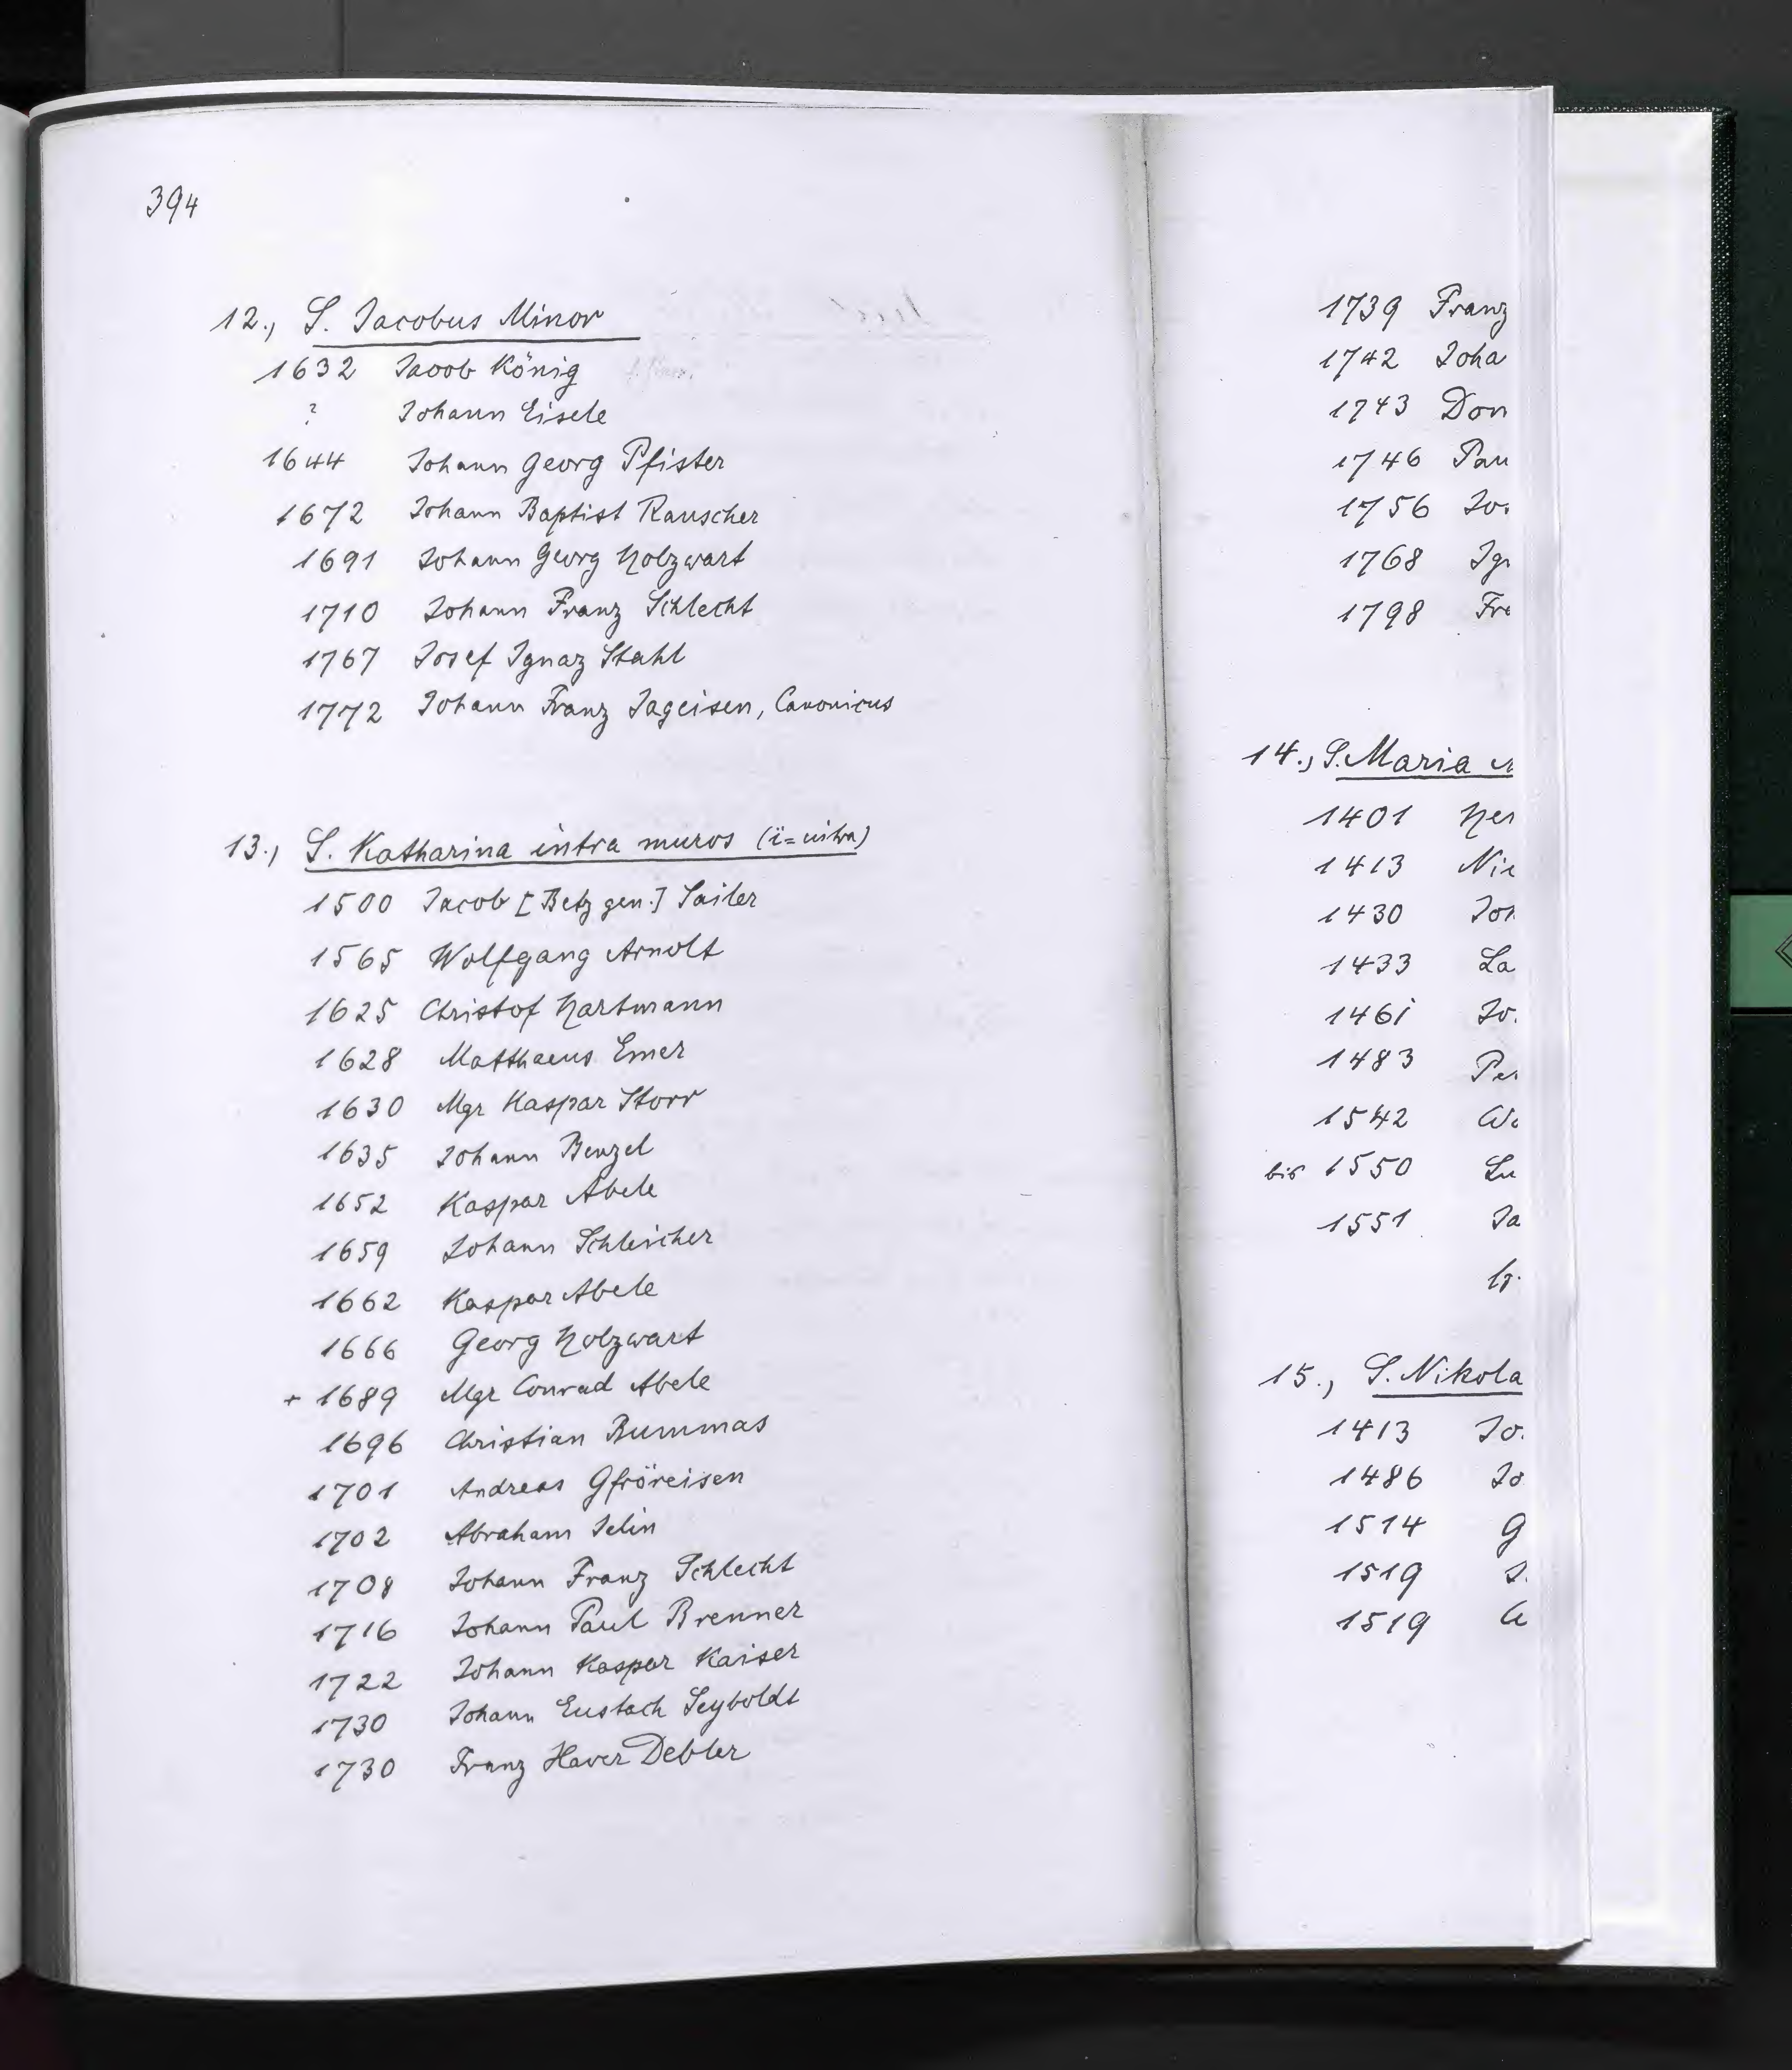 394
12., S. Jacobus Minor
1632 Jacob König
? Johann Eisele
1644 Johann Georg Pfister
1672 Johann Baptist Rauscher
1691 Johann Georg Holzwart
1710 Johann Franz Schlecht
1767 Josef Ignaz Stahl
1772 Johann Franz Jageisen, Canonicus
13., S. Katharina intra muros
1500 Jacob [Betz gen.] Sailer
1565 Wolfgang Arnolt
1625 Christof Hartmann
1628 Matthaeus Emer
1630 Mgr Kaspar Storr
1635 Johann Benzel
1652 Kaspar Abele
1659 Johann Schleicher
1662 Kaspar Abele
1666 Georg Holzwart
+ 1689 Mgr Conrad Abele
1696 Christian Bummas
1701 Andreas Gfröreisen
1702 Abraham Jelin
1708 Johann Franz Schlecht
1716 Johann Paul Brenner
1722 Johann Kaspar Kaiser
1730 Johann Eustach Seyboldt
1730 Franz Xaver Debler
1739 Franz
1742 Joha
1743 Dom
1746 Pau
1756 Jo
1768 Ig
1798 Fr
14., S. Maria
1401 Her
1413 Nic
1430 Joh
1433 La
1461 Jo
1483 Pe
1542
bis 1550 Lu
1551 Ja
15., S. Nikola
1413 Jo
1486 Jo
1514 G
1519
1519